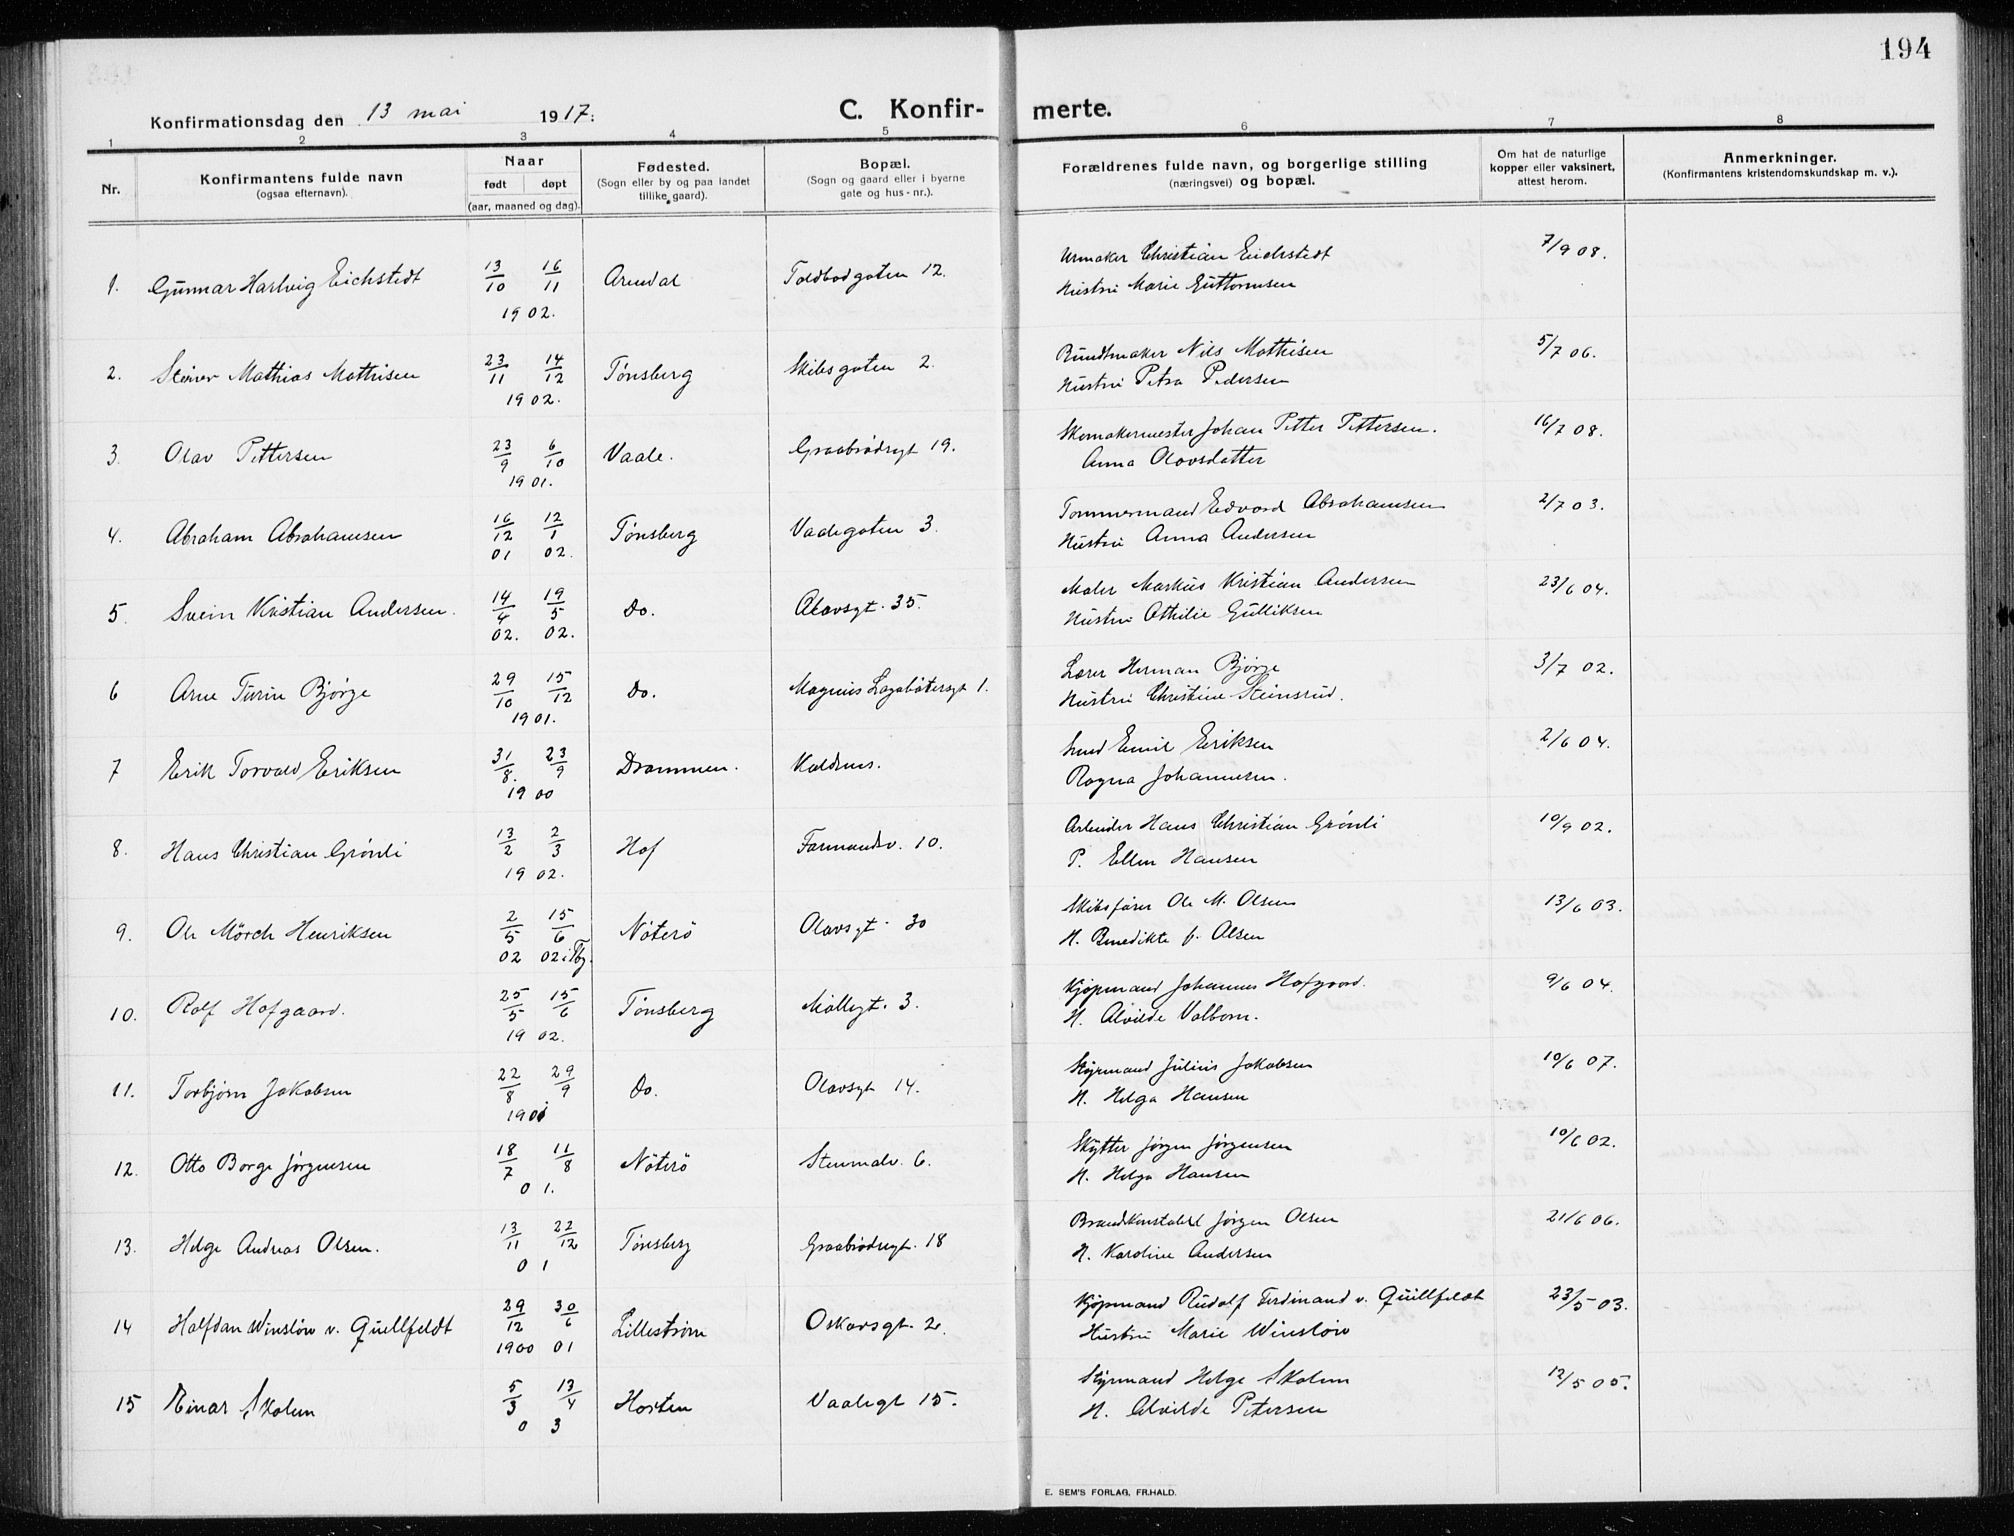 194
Konfirmationsdag den 13 mai 1917.
C. Konfir- merte.
1 2 3 4 5 6 7 8
Nr.
Konfirmantens fulde navn
(ogsaa efternavn).
Naar
født døpt
(aar, maaned og dag).
Fødested.
(Sogn eller by og paa landet
tillike gaard).
Bopæl.
(Sogn og gaard eller i byerne
gate og hus-nr.).
Forældrenes fulde navn, og borgerlige stilling
(næringsvei) og bopæl.
Om hat de naturlige
kopper eller vaksinert,
attest herom.
Anmerkninger.
(Konfirmantens kristendomskundskap m. v.).
1. Gunnar Hartvig Eichstedt 13/10 16/11 1902. Arendal Toldbodgaten 12. Urmaker Christian Eichstedt 7/9 08.
Hustru Marie Guttormsen
2. Steiner Mathias Mathisen 23/11 14/12 1902. Tønsberg Skibsgaten 2. Buntmaker Nils Mathisen 5/7 06.
Hustru Petra Pedersen
3. Olav Pettersen 23/9 6/10 1901. Vaale. Graabrødregt 19. Skomakermester Johan Petter Pettersen. 16/7 08.
Anna Olavsdatter
4. Abraham Abrahamsen 16/12 01 12/1 02. Tønsberg Vaalegaten 3. Tømmermand Edvard Abrahamsen 2/7 03.
Hustru Anna Andersen
5. Svein Kristian Andersen. 14/4 02. 19/5 02. Do. Olavsgt. 35. Maler Markus Kristian Andersen 23/6 04.
Hustru Othilie Gulliksen
6 Arne Turin Bjørge 29/10 15/12 1901. Do. Magnus Lagabøtersgt 1. Lærer Herman Bjørge 3/7 02.
Hustru Christine Steinsrud.
7 Erik Torvald Eriksen 31/8. 23/9 1900 Drammen. Kaldnes. Smed Emil Eriksen 2/6 04.
Ragna Johannesen.
8. Hans Christian Grönli 13/2 2/3 1902. Hof Farmandsv. 10. Arbeider Hans Christian Grönli 10/9 02.
P. Ellen Hansen
9. Ole Mörch Henriksen 2/5 02 15/6 02 i Tbg. Nøterø Olavsgt. 30 Skibsfører Ole M. Olsen 13/6 03.
H. Benedikte f. Olsen
10. Rolf Hofgaard. 25/5 15/6 1902. Tønsberg Møllegt. 3. Kjøpmand Johannes Hofgaard. 9/6 04.
H. Alvilde Valborn.
11. Torbjørn Jakobsen 22/8 29/9 1901 Do. Olavsgt 14. Styrmand Julius Jakobsen 10/6 07.
H. Helga Hansen
12. Otto Borge Jørgensen 18/7 11/8 01. Nøterø Stenmalv. 6. Skytter Jørgen Jørgensen 10/6 02.
H. Helga Hansen
13. Helge Andreas Olsen. 13/11 22/12 01 Tønsberg Graabrødregt. 18 Brandkonstabel Jørgen Olsen 21/6 06.
H. Karoline Andersen
14 Halfdan Winsløw v. Quillfeldt 29/12 1900 30/6 01 Lillestrøm Oskarsgt. 2. Kjøpmand Rudolf Ferdinand v. Quillfeldt 23/5 03.
Hustru Marie Winsløw
15 Einar Skolem 5/3 13/4 03 Horten Vaalegt 15. Styrmand Helge Skolem 12/5 05.
H. Alvilde Petersen
E. SEM'S FORLAG, FR.HALD.